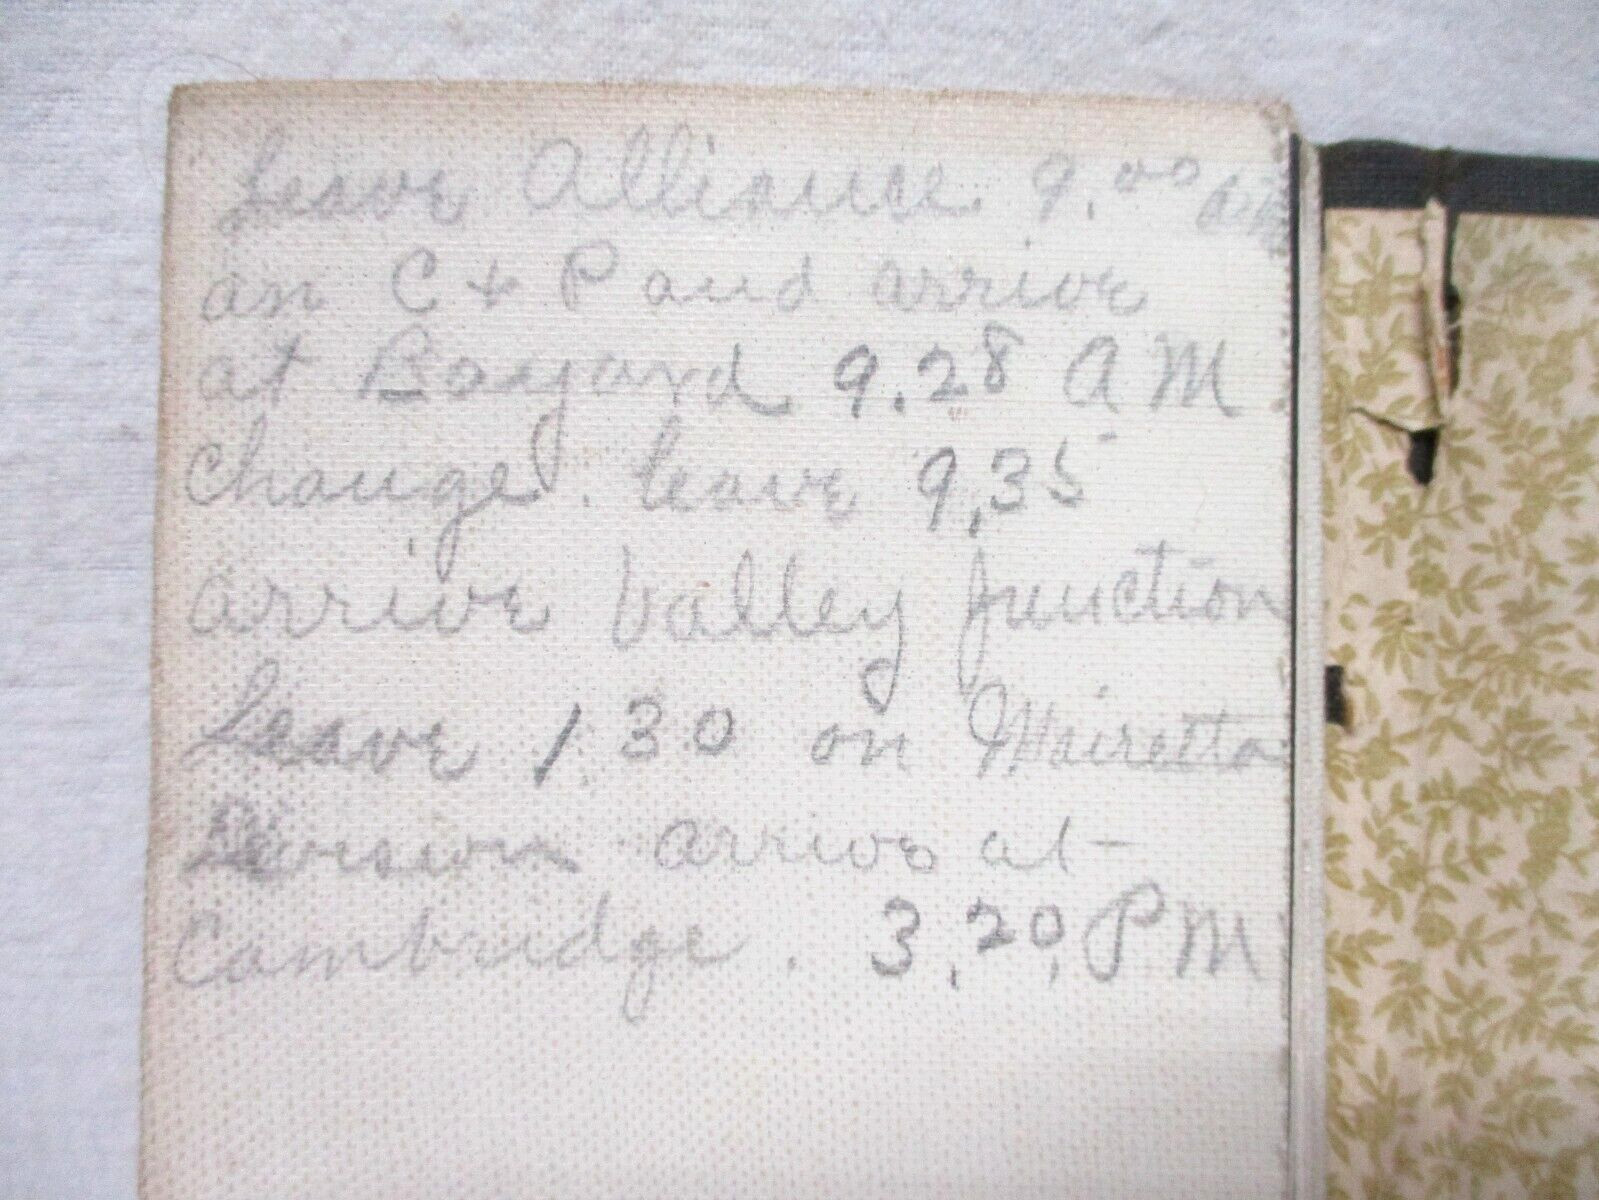 Leave Alliance 9.00 AM
on C & P and arrive
at Bayard 9.28 AM
Change. leave 9,35
arrive Valley Junction
Leave 1.30 on Mairetta
Division arrive at
Cambridge. 3,20, PM